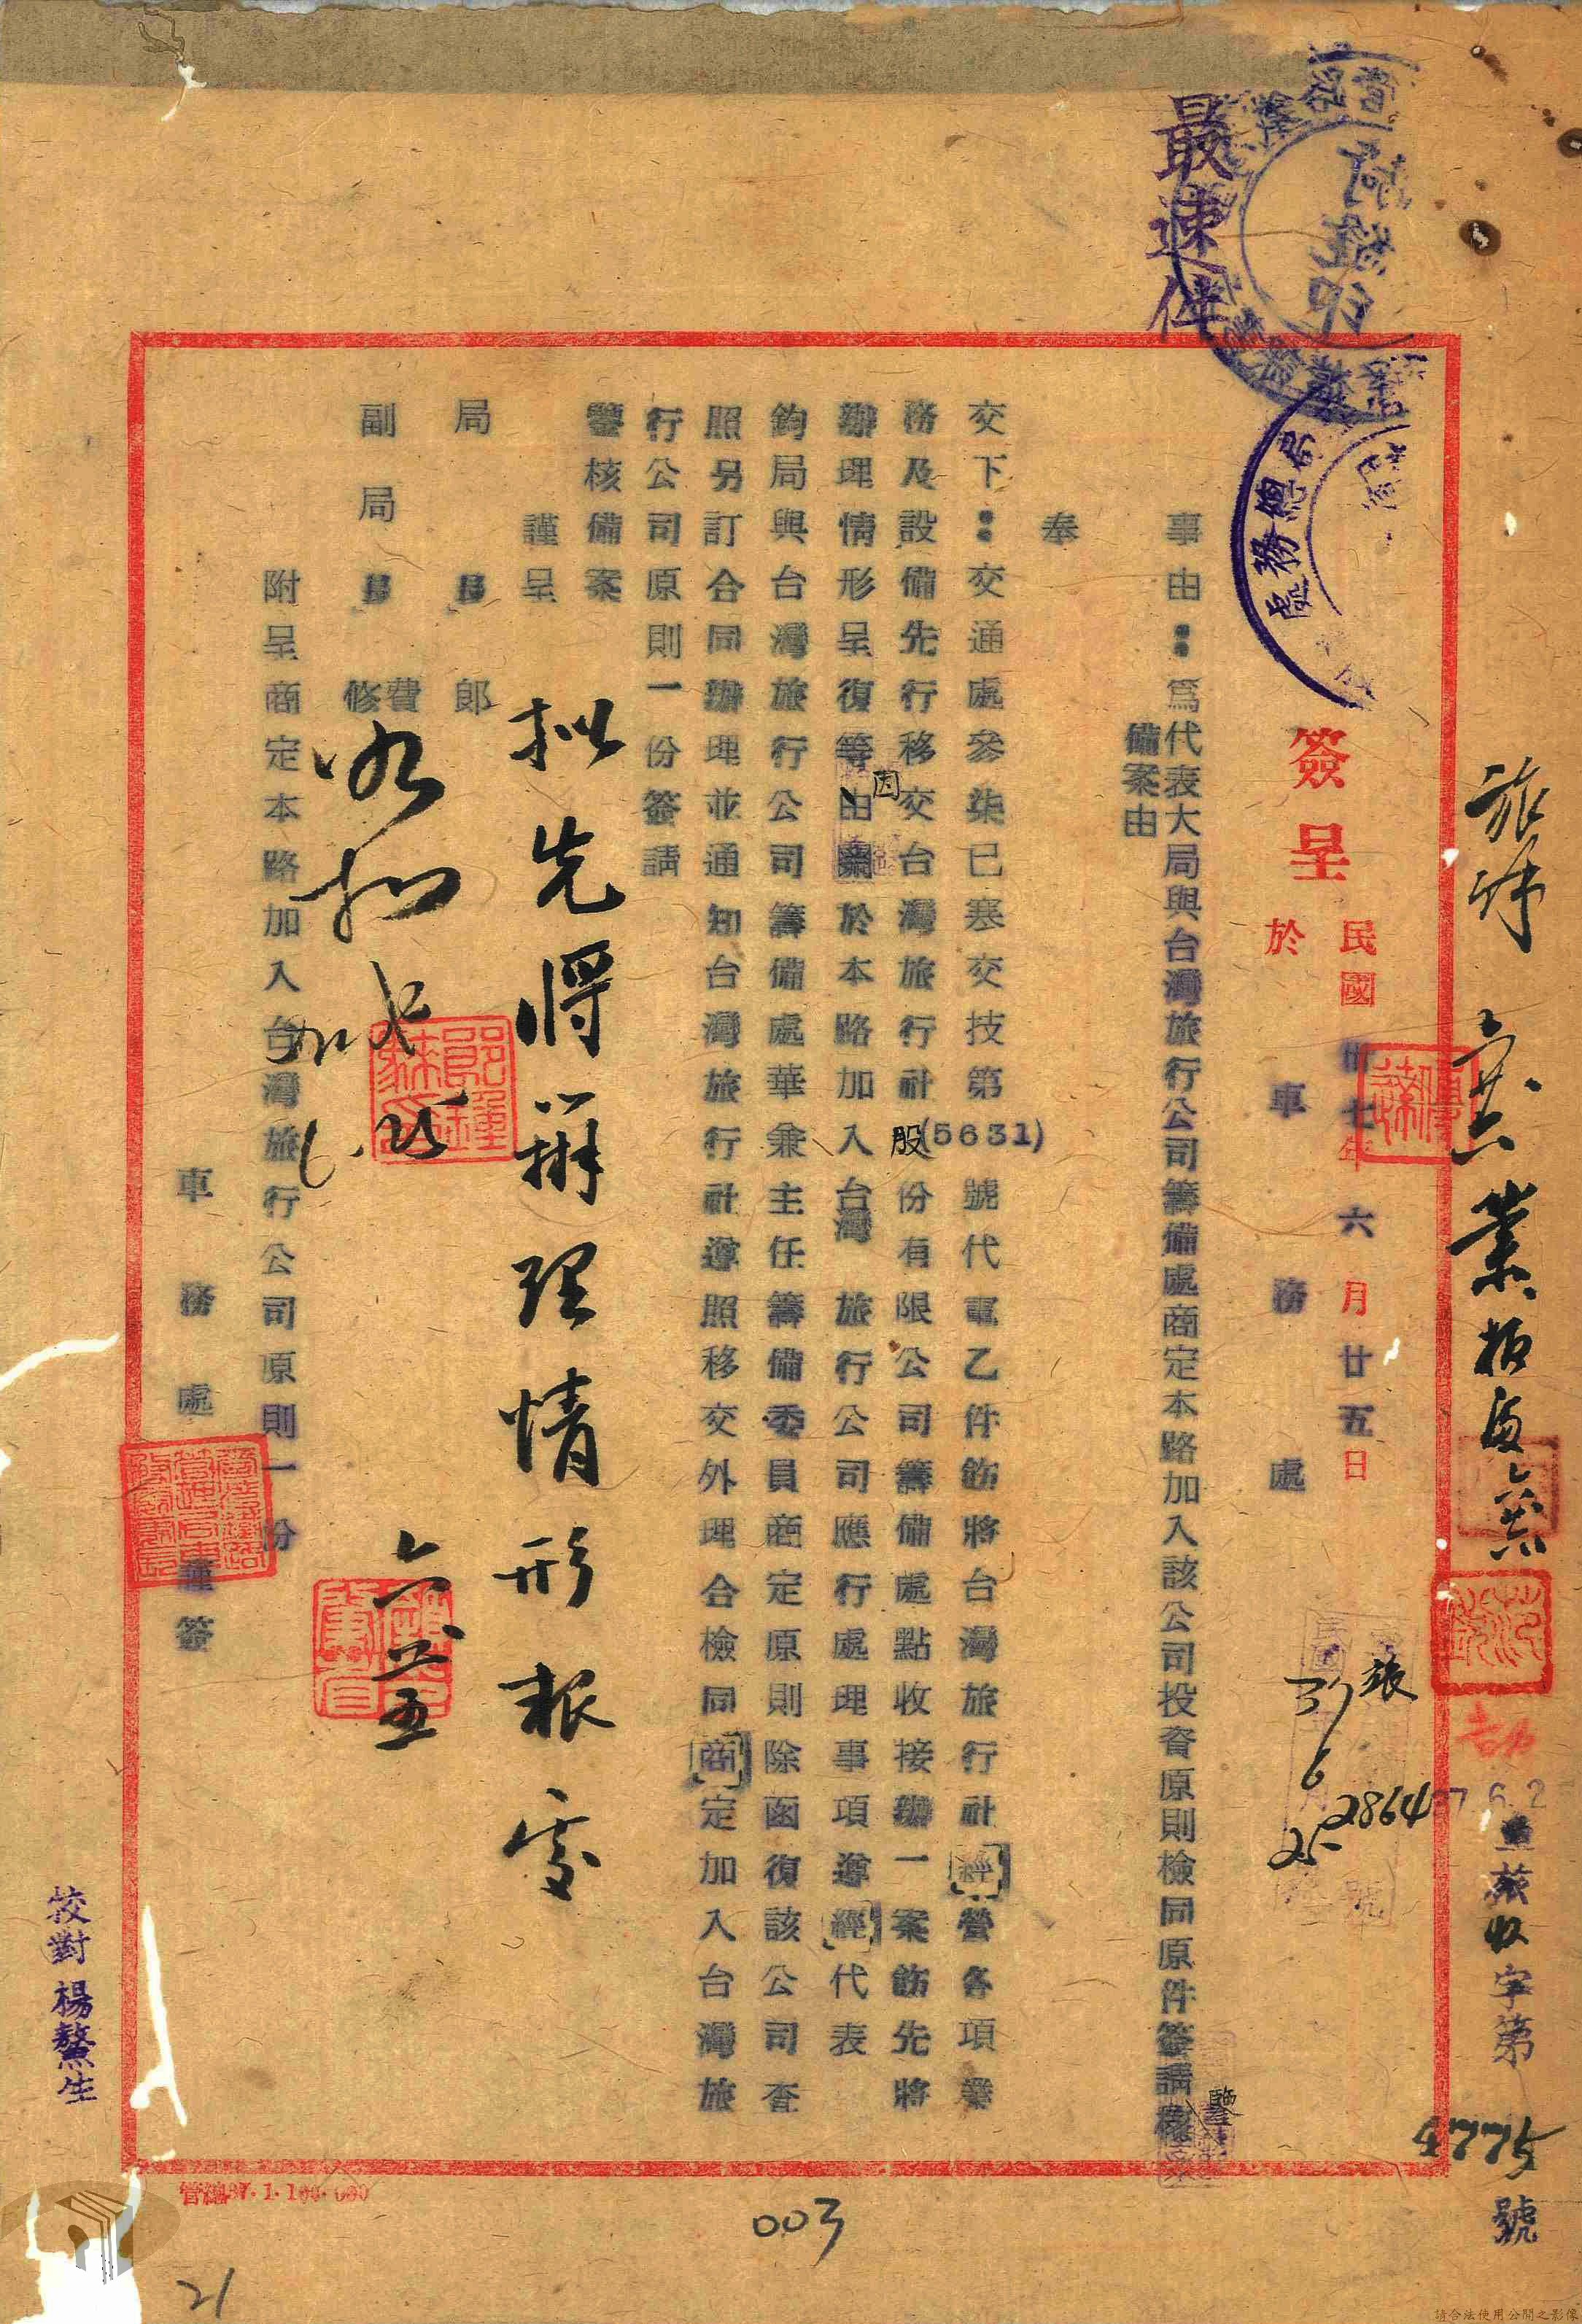 最速件
旅
業
收字第
4775
號
簽呈
民國卅七年六月廿五日
於車務處
張
37
6
25
2864
處務總局
事由：爲代表大局與台灣旅行公司籌備處商定本路加入該公司投資原則檢同原件簽請鑒核
備案由
奉
交下：交通處參柒巳寒交技第(5631)號代電乙件飭將台灣旅行社經營各項業
務及設備先行移交台灣旅行社股份有限公司籌備處點收接辦一案飭先將
辦理情形呈復等因關於本路加入台灣旅行公司應行處理事項遵經代表
鈞局與台灣旅行公司籌備處華兼主任籌備委員商定原則除函復該公司查
照另訂合同辦理並通知台灣旅行社遵照移交外理合檢同商定加入台灣旅
行公司原則一份簽請
鑒核備案
謹呈
局長郎
副局長費
修
附呈商定本路加入台灣旅行公司原則一份
車務處謹簽
擬先將辦理情形報處
六
校對楊鰲生
管鐵37.1.100.000
003
21
請合法使用公開之影像